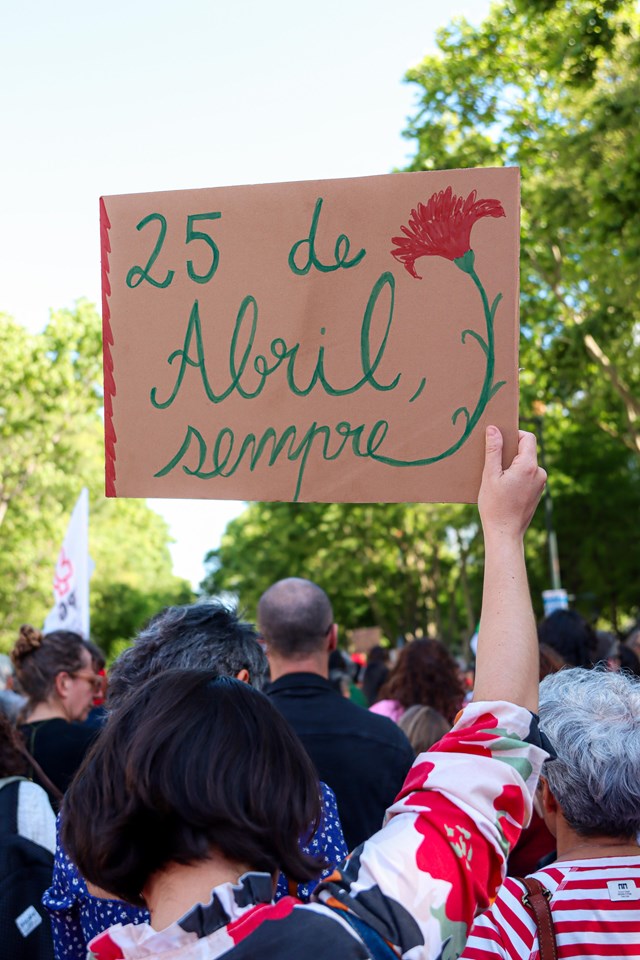 25 de
Abril,
sempre